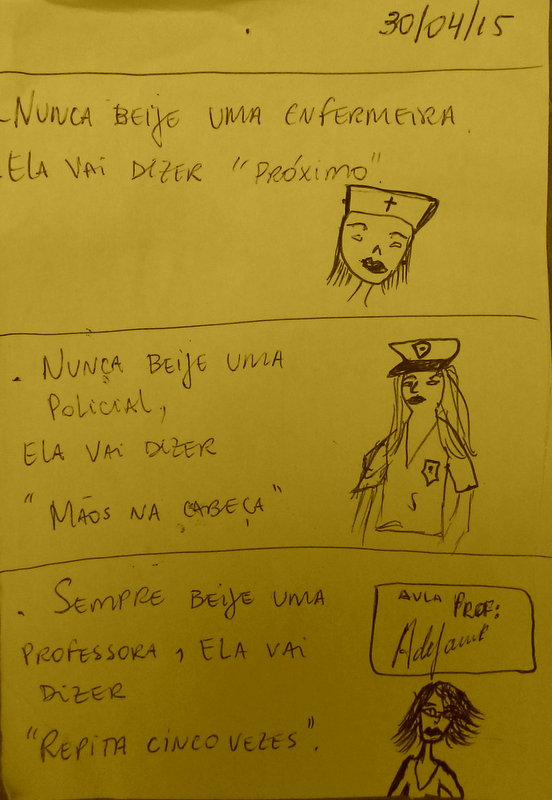 30/04/15
. NUNCA BEIJE UMA ENFERMEIRA.
. ELA VAI DIZER "PRÓXIMO".
. NUNCA BEIJE UMA
POLICIAL,
ELA VAI DIZER
"MÃOS NA CABEÇA"
. SEMPRE BEIJE UMA
PROFESSORA, ELA VAI
DIZER
"REPITA CINCO VEZES".
AULA PROF: